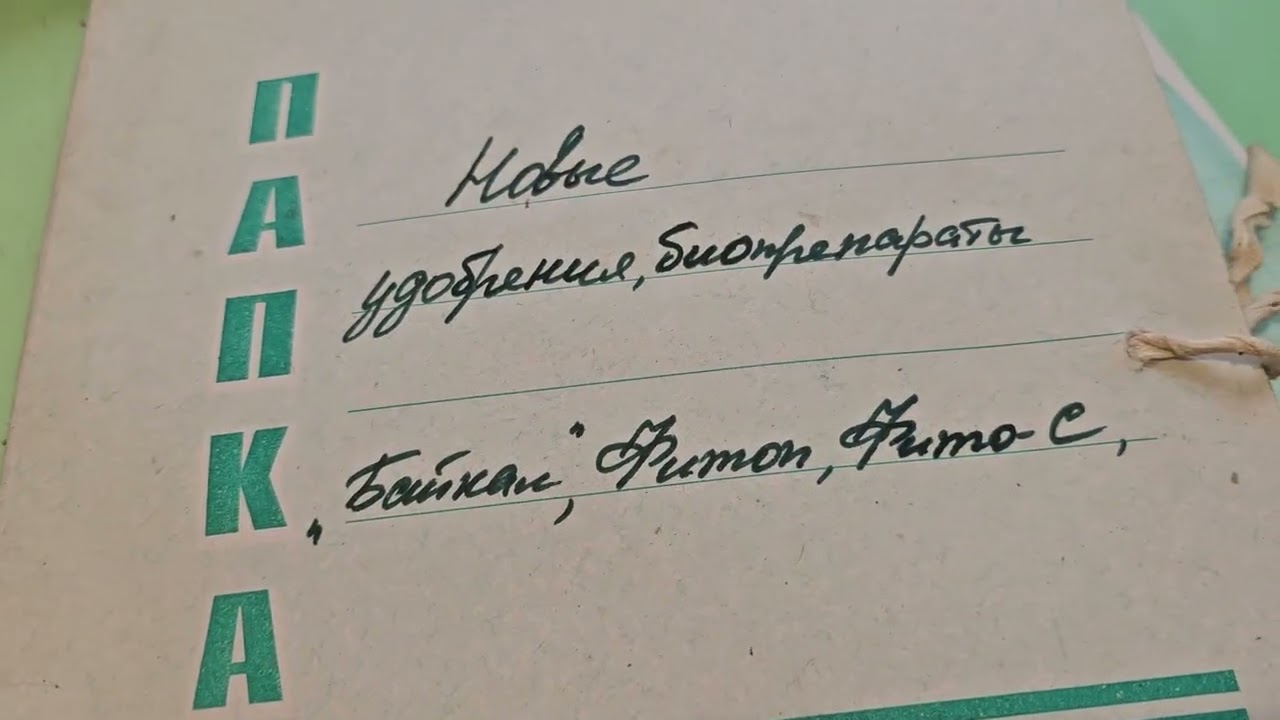 ПАПКА
Новые
удобрения, биопрепараты
„Байкал", Фитоп, Фито-С,